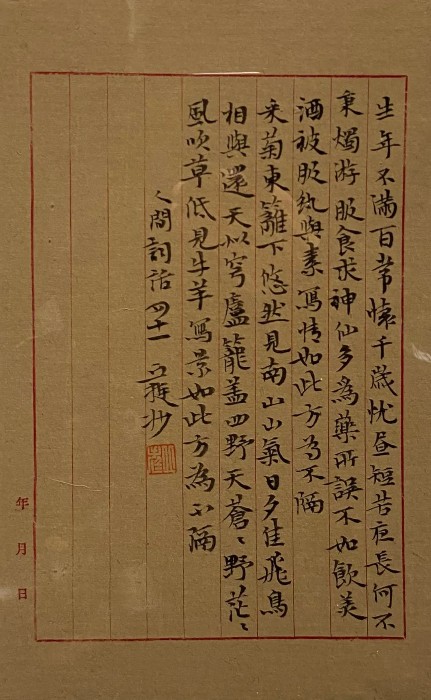 生年不滿百常懷千歲忧昼短苦夜長何不
秉燭游服食求神仙多為藥所誤不如飲美
酒被服紈與素寫情如此方為不隔
采菊東籬下悠然見南山山氣日夕佳飛鳥
相與還天似穹廬籠盖四野天蒼〻野茫〻
風吹草低見牛羊寫景如此方為不隔
人間詞話四十一 抄
年月日